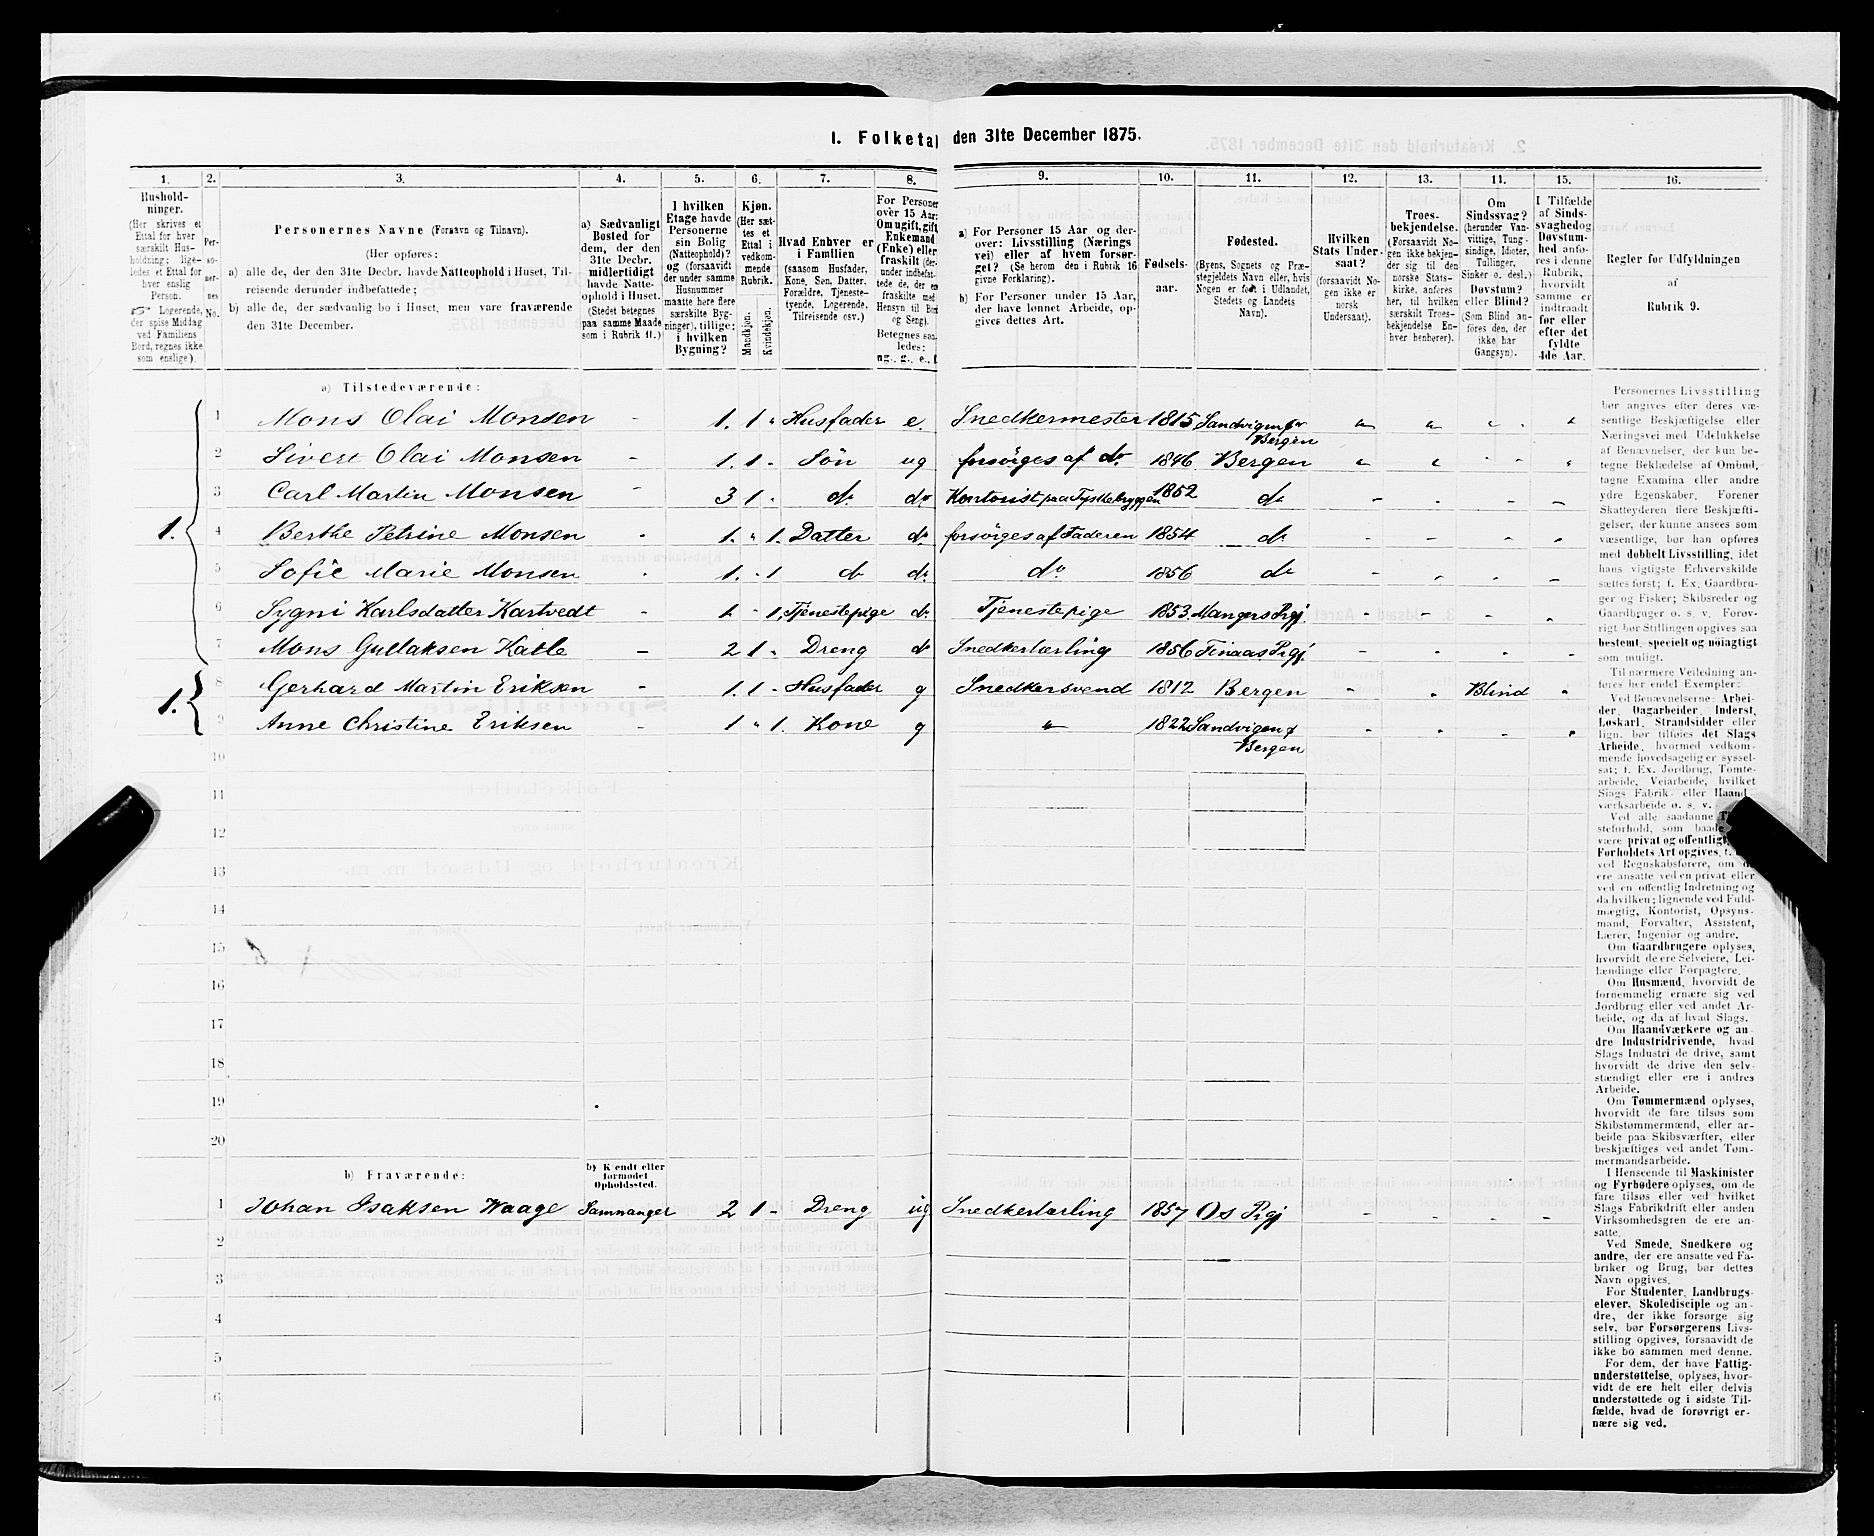 1. Folketal den 31te December 1875.
1. 2. 3. 4. 5. 6. 7. 8. 9. 10. 11. 12. 13. 14. 15. 16.
Hushold-
ninger.
(Her skrives et
Ettal for hver
særskilt Hus-
holdning; lige-
ledes et Ettal for
hver enslig
Person.
☞ Logerende,
der spise Middag
ved Familiens
Bord, regnes ikke
som enslige).
Per-
so-
ner-
nes
No.
Personernes Navne (Fornavn og Tilnavn).
(Her opføres:
a) alle de, der den 31te Decbr. havde Natteophold i Huset, Til-
reisende derunder indbefattede;
b) alle de, der sædvanlig bo i Huset, men vare fraværende
den 31te December.
a) Sædvanligt
Bosted for
dem, der den
31te Decbr.
midlertidigt
havde Natte-
ophold i Huset.
(Stedet betegnes
paa samme Maade
som i Rubrik 11.)
I hvilken
Etage havde
Personerne
sin Bolig
(Natteophold)?
og (forsaavidt
der under samme
Husnummer
maatte høre flere
særskilte Byg-
ninger), tillige:
i hvilken
Bygning?
Kjøn.
(Her sæt-
tes et
Ettal i
vedkom-
mende
Rubrik.
Mandkjøn.
Kvindekjøn.
Hvad Enhver er
i Familien
(saasom Husfader,
Kone, Søn, Datter,
Forældre, Tjeneste-
tyende, Logerende,
Tilreisende osv.)
For Personer
over 15 Aar:
Om ugift, gift,
Enkemand
(Enke) eller
fraskilt (der-
under indbefat-
tede de, der ere
fraskilte med
Hensyn til Bord
og Seng).
Betegnes saa-
ledes:
ug., g., e., f.
a) For Personer 15 Aar og der-
over: Livsstilling (Nærings
vei) eller af hvem forsør-
get? (Se herom den i Rubrik 16
givne Forklaring).
b) For Personer under 15 Aar,
der have lønnet Arbeide, op-
gives dettes Art.
Fødsels-
aar.
Fødested.
(Byens, Sognets og Præ-
stegjeldets Navn eller, hvis
Nogen er født i Udlandet,
Stedets og Landets
Navn).
Hvilken
Stats Under-
saat?
(forsaavidt No-
gen ikke er
norsk
Undersaat).
Troes-
bekjendelse.
(Forsaavidt No-
gen ikke bekjen-
der sig til den
norske Stats-
kirke, anføres
her, til hvilken
særskilt Troes-
bekjendelse En-
hver henhører).
Om
Sindssvag?
(herunder Van-
vittige, Tung-
sindige, Idioter,
Tullinger,
Sinker o. desl.)
Døvstum?
eller Blind?
(Som Blind an-
føres den, der
ikke har
Gangsyn).
I Tilfælde
af Sinds-
svaghed og
Døvstum-
hed anfø-
res i denne
Rubrik,
hvorvidt
samme er
indtraadt
før eller
efter det
fyldte
4de Aar.
Regler for Udfyldningen
af
Rubrik 9.
a) Tilstedeværende:
1. 1 Mons Olai Monsen - 1. 1 " Husfader e. Snedkermester 1815 Sandvigen for Bergen " " " "
2 Sivert Olai Monsen - 1. 1 - Søn ug forsørges af do. 1846 Bergen " " - - "
3 Carl Martin Monsen - 3 1 - do do Kontorist paa Tyskebryggen 1852 do - - - -
4 Berthe Petrine Monsen - 1. " 1. Datter do forsørges af Faderen 1854 do - - - -
5 Sofie Marie Monsen - 1. - 1 do do. do 1856 do - - - -
6 Sygni Karlsdatter Kartvedt - 1 - 1. Tjenestepige do. Tjenestepige 1853. Mangers Prgj. - - - -
7 Mons Gullaksen Katle - 2 1 - Dreng do Snedkerlærling 1856 Finaas Prgj. - - - -
1. 8 Gerhard Martin Eriksen - 1. 1 - Husfader g Snedkersvend 1812 Bergen - - Blind -
9 Anne Christine Eriksen - 1 " 1. Kone g " 1822 Sandvigen f Bergen - - - -
10
11
12
13
14
15
16
17
18
19
20
b) Fraværende:
b) Kjendt eller
formodet
Opholdssted.
1 Johan Isaksen Waage Samnanger 2 1 - Dreng ug Snedkerlærling 1857 Os Prgj - - - -
2
3
4
5
6
Personernes Livsstilling
bør angives efter deres væ-
sentlige Beskjæftigelse eller
Næringsvei med Udelukkelse
af Benævnelser, der kun be-
tegne Beklædelse af Ombud,
tagne Examina eller andre
ydre Egenskaber. Forener
Skatteyderen flere Beskjæfti-
gelser, der kunne ansees som
væsentlige, bør han opføres
med dobbelt Livsstilling, idet
hans vigtigste Erhvervskilde
sættes først; f. Ex. Gaardbru-
ger og Fisker; Skibsreder og
Gaardbruger o. s. v. Forøv-
rigt bør Stillingen opgives saa
bestemt, specielt og nøiagtigt
som muligt.
Til nærmere Veiledning an-
føres her endel Exempler:
Ved Benævnelserne Arbei-
der, Dagarbeider, Inderst,
Løskarl, Strandsidder eller
lign. bør tilføies det Slags
Arbeide, hvormed vedkom-
mende hovedsagelig er syssel-
sat; f. Ex. Jordbrug, Tomte-
arbeide, Veiarbeide, hvilket
Slags Fabrik- eller Haand-
værksarbeide o. s. v.
Ved alle saadanne
steforhold, som baade
være privat og offentlig,
Forholdets Art opgives,
ved Regnskabsførere, om
ere ansatte ved en privat eller
ved en offentlig Indretning og
da hvilken; lignende ved Fuld-
mægtig, Kontorist, Opsyns-
mand, Forvalter, Assistent,
Lærer, Ingeniør og andre.
Om Gaardbrugere oplyses,
hvorvidt de ere Selveiere, Lei-
lændinge eller Forpagtere.
Om Husmænd, hvorvidt de
fornemmelig ernære sig ved
Jordbrug eller ved andet Ar-
beide, og da af hvad Slags.
Om Haandværkere og an-
dre Industridrivende, hvad
Slags Industri de drive, samt
hvorvidt de drive den selv-
stændigt eller ere i andres
Arbeide.
Om Tømmermænd oplyses,
hvorvidt de fare tilsøs som
Skibstømmermænd, eller ar-
beide paa Skibsværfter, eller
beskjæftiges ved andet Tøm-
mermandsarbeide.
I Henseende til Maskinister
og Fyrbødere oplyses, om de
fare tilsøs eller ved hvilket
Slags Fabrikdrift eller anden
Virksomhedsgren de ere an-
satte.
Ved Smede, Snedkere og
andre, der ere ansatte ved Fa-
briker og Brug, bør dettes
Navn opgives.
For Studenter, Landbrugs-
elever, Skoledisciple og an-
dre, der ikke forsørge sig
selv, bør Forsørgerens Livs-
stilling opgives, forsaavidt de
ikke bo sammen med denne.
For dem, der have Fattig-
understøttelse, oplyses, hvor-
vidt de ere helt eller delvis
understøttede og i sidste Til-
fælde, hvad de forøvrigt er-
nære sig ved.